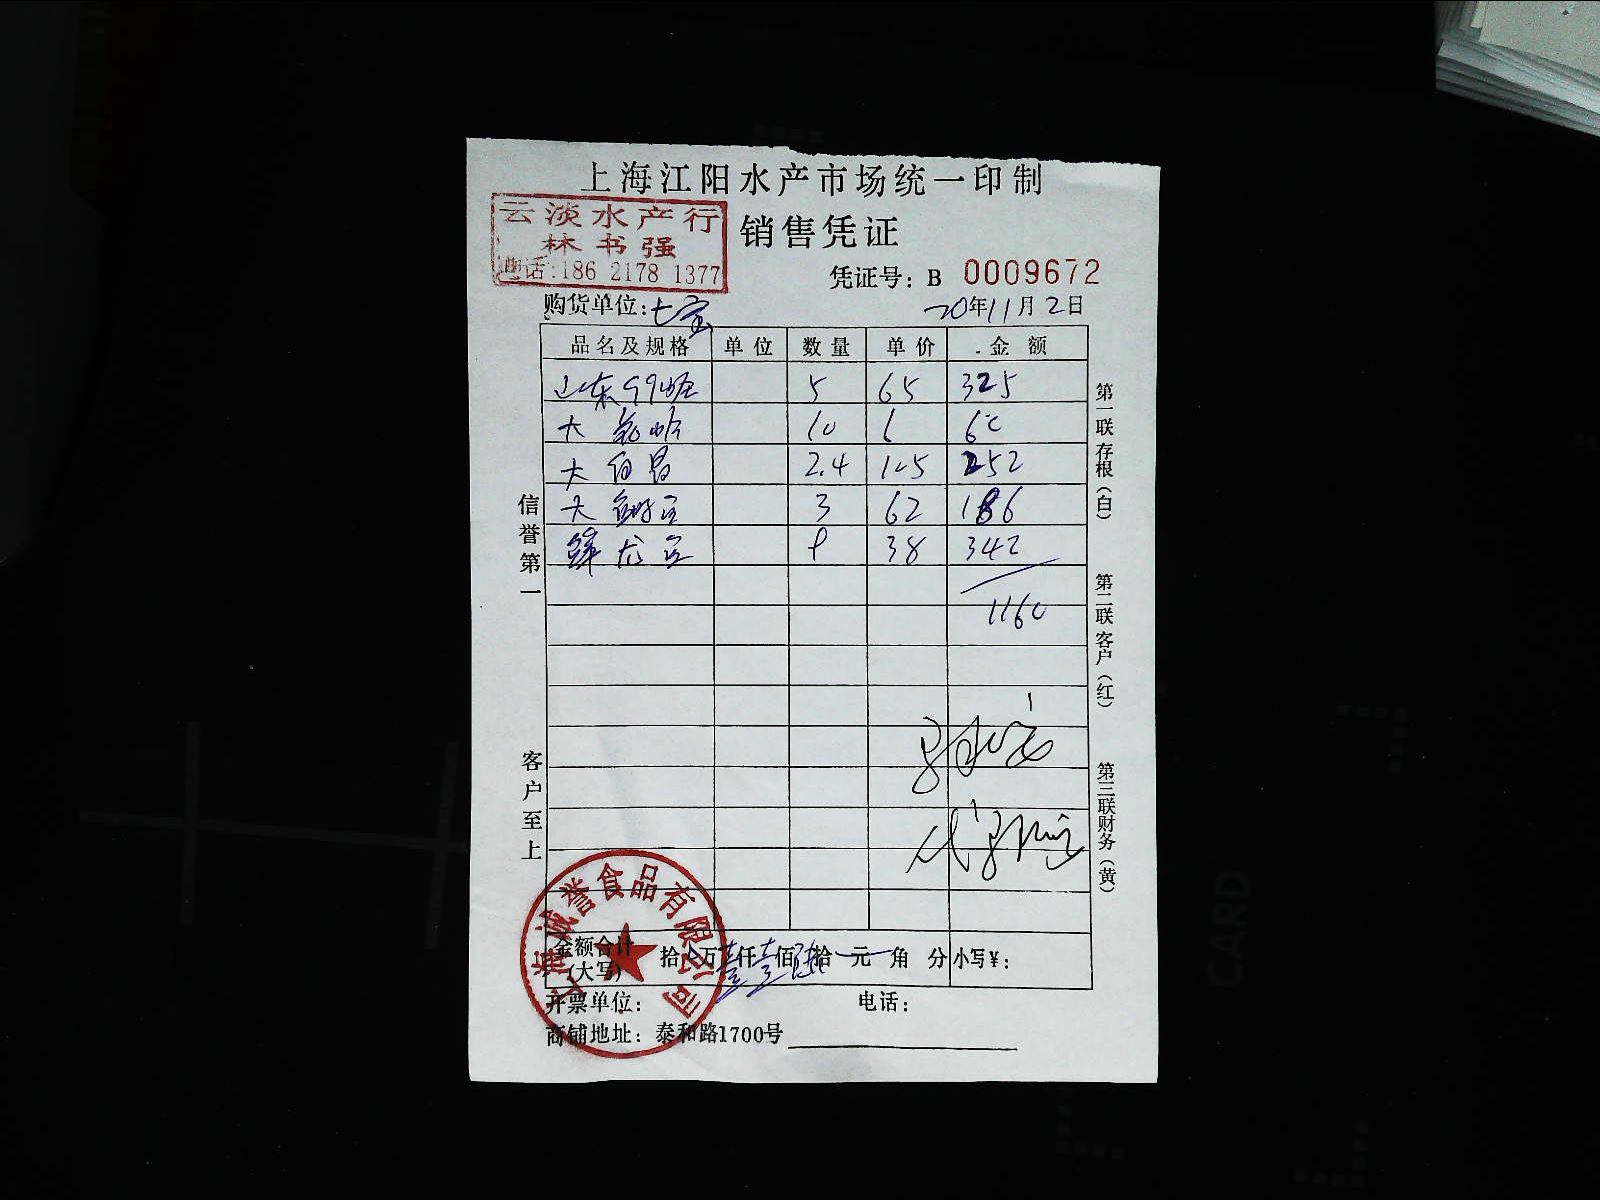 上海江阳水产市场统一印制
云淡水产行
林书强
电话:186 2178 1377
销售凭证
凭证号: B 0009672
购货单位:七宝
20年11月2日
品名及规格 单位 数量 单价 金额
山东 5 65 325
大 10 6 60
大白昌 2.4 105 252
大 3 62 186
9 38 342
1160
第一联存根(白)
第二联客户(红)
第三联财务(黄)
信誉第一
客户至上
上海诚誉食品有限公司
金额合计(大写) 拾 万壹仟壹佰陆拾 元 角 分 小写¥:
开票单位: 电话:
商铺地址: 泰和路1700号
CARD